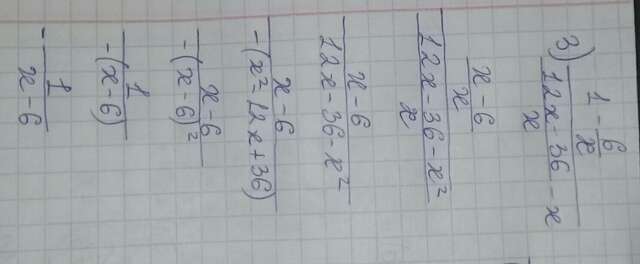 3) (1 - 6/x) / ((12x - 36)/x - x)
((x - 6)/x) / ((12x - 36 - x²)/x)
(x - 6) / (12x - 36 - x²)
(x - 6) / (-(x² - 12x + 36))
(x - 6) / (-(x - 6)²)
1 / (-(x - 6))
- 1/(x - 6)